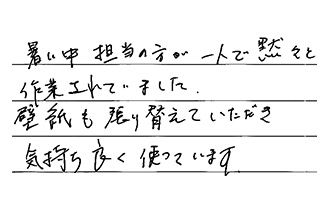 暑い中 担当の方が 一人で黙々と
作業されていました.
壁紙も張り替えていただき
気持ち良く使っています